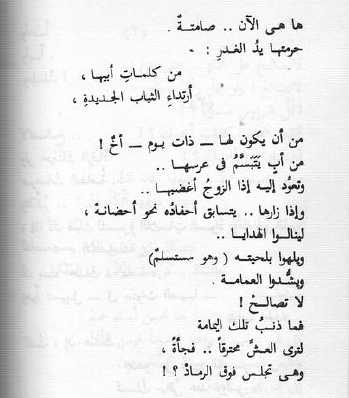 ها هى الآن .. صامتةٌ
حرمتها يدُ الغدرِ :
من كلماتِ أبيها ،
أرتداءِ الثيابِ الجديدةِ ،
من أن يكون لها ــ ذات يوم ــ أخٌ !
من أبٍ يَتَبَسَّمُ فى عرسِها ..
وتعودُ إليه إذا الزوجُ أغضبها ..
وإذا زارها .. يتسابق أحفادُه نحو أحضانهْ ،
لينالوا الهدايا ..
ويلهوا بلحيته ( وهو مستسلمٌ)
ويشُدوا العمامة ..
لا تصالحْ !
فما ذنبُ تلك اليمامة
لترى العشَّ محترقاً .. فجأةً ،
وهى تجلس فوق الرمادْ ؟ !